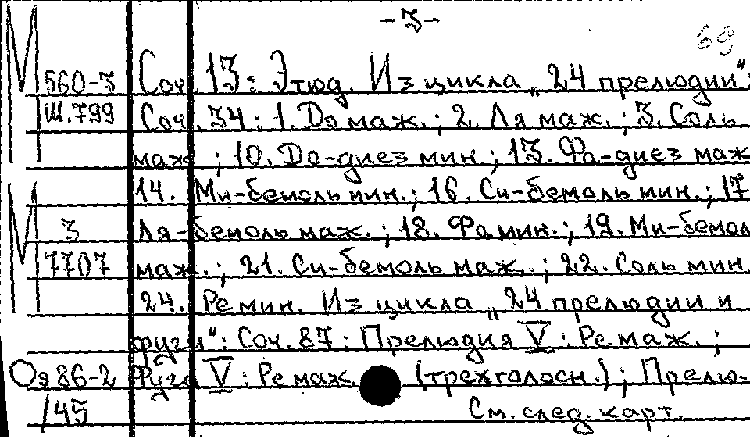 -3-
69
560-3 Соч. 13: Этюд. Из цикла „24 прелюдии":
Ш.799 Соч. 34: 1. До маж.; 2. Ля маж.; 3. Соль
маж.; 10. До-диез мин.; 13. Фа-диез маж
14. Ми-бемоль мин.; 16. Си-бемоль мин.; 17
3 Ля-бемоль маж.; 18. Фа мин.; 19. Ми-бемол
7707 маж.; 21. Си-бемоль маж.; 22. Соль мин.
24. Ре мин. Из цикла „24 прелюдии и
фуги": Соч. 87: Прелюдия V: Ре маж.;
Оя86-2 Фуга V: Ре маж. (трехголосн.); Прелю-
/45 См. след. карт.